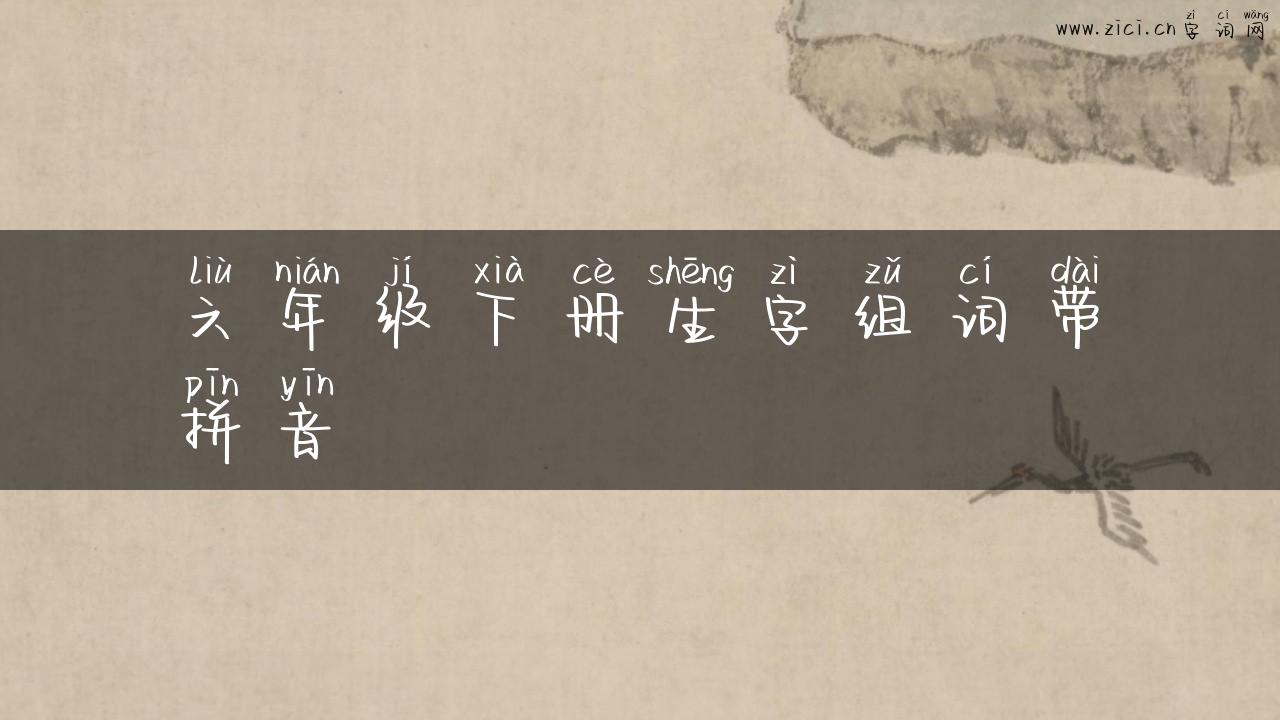 zì cí wǎng
www.zici.cn 字词网
liù nián jí xià cè shēng zì zǔ cí dài
六年级下册生字组词带
pīn yīn
拼音